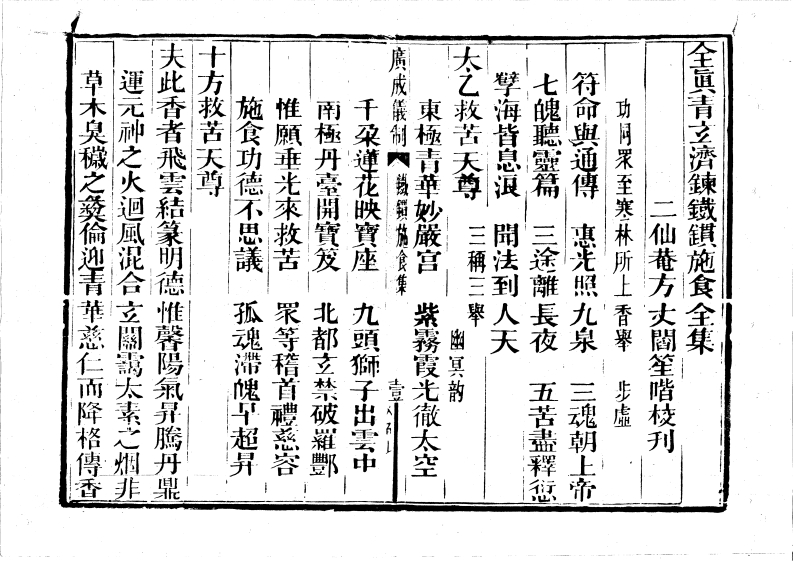 全真青玄濟鍊鐵鑵施食全集
二仙菴方丈閻笙喈校刊
功同眾至寒林所上香舉 步虛
符命與通傳 惠光照九泉 三魂朝上帝
七魄聽靈篇 三途離長夜 五苦盡釋愆
孽海皆息浪 聞法到人天
太乙救苦天尊 三稱三舉 幽冥韵
東極青華妙嚴宮 紫霧霞光徹太空
廣成儀制 鐵鑵施食集 壹
千朶蓮花映寶座 九頭獅子出雲中
南極丹臺開寶笈 北都玄禁破羅酆
惟願垂光來救苦 眾等稽首禮慈容
施食功德不思議 孤魂滯魄早超昇
十方救苦天尊
夫此香者飛雲結篆明德惟馨陽氣昇騰丹鼎
運元神之火迴風混合玄關靄太素之烟非
草木臭穢之發倫迎青華慈仁而降格傳香